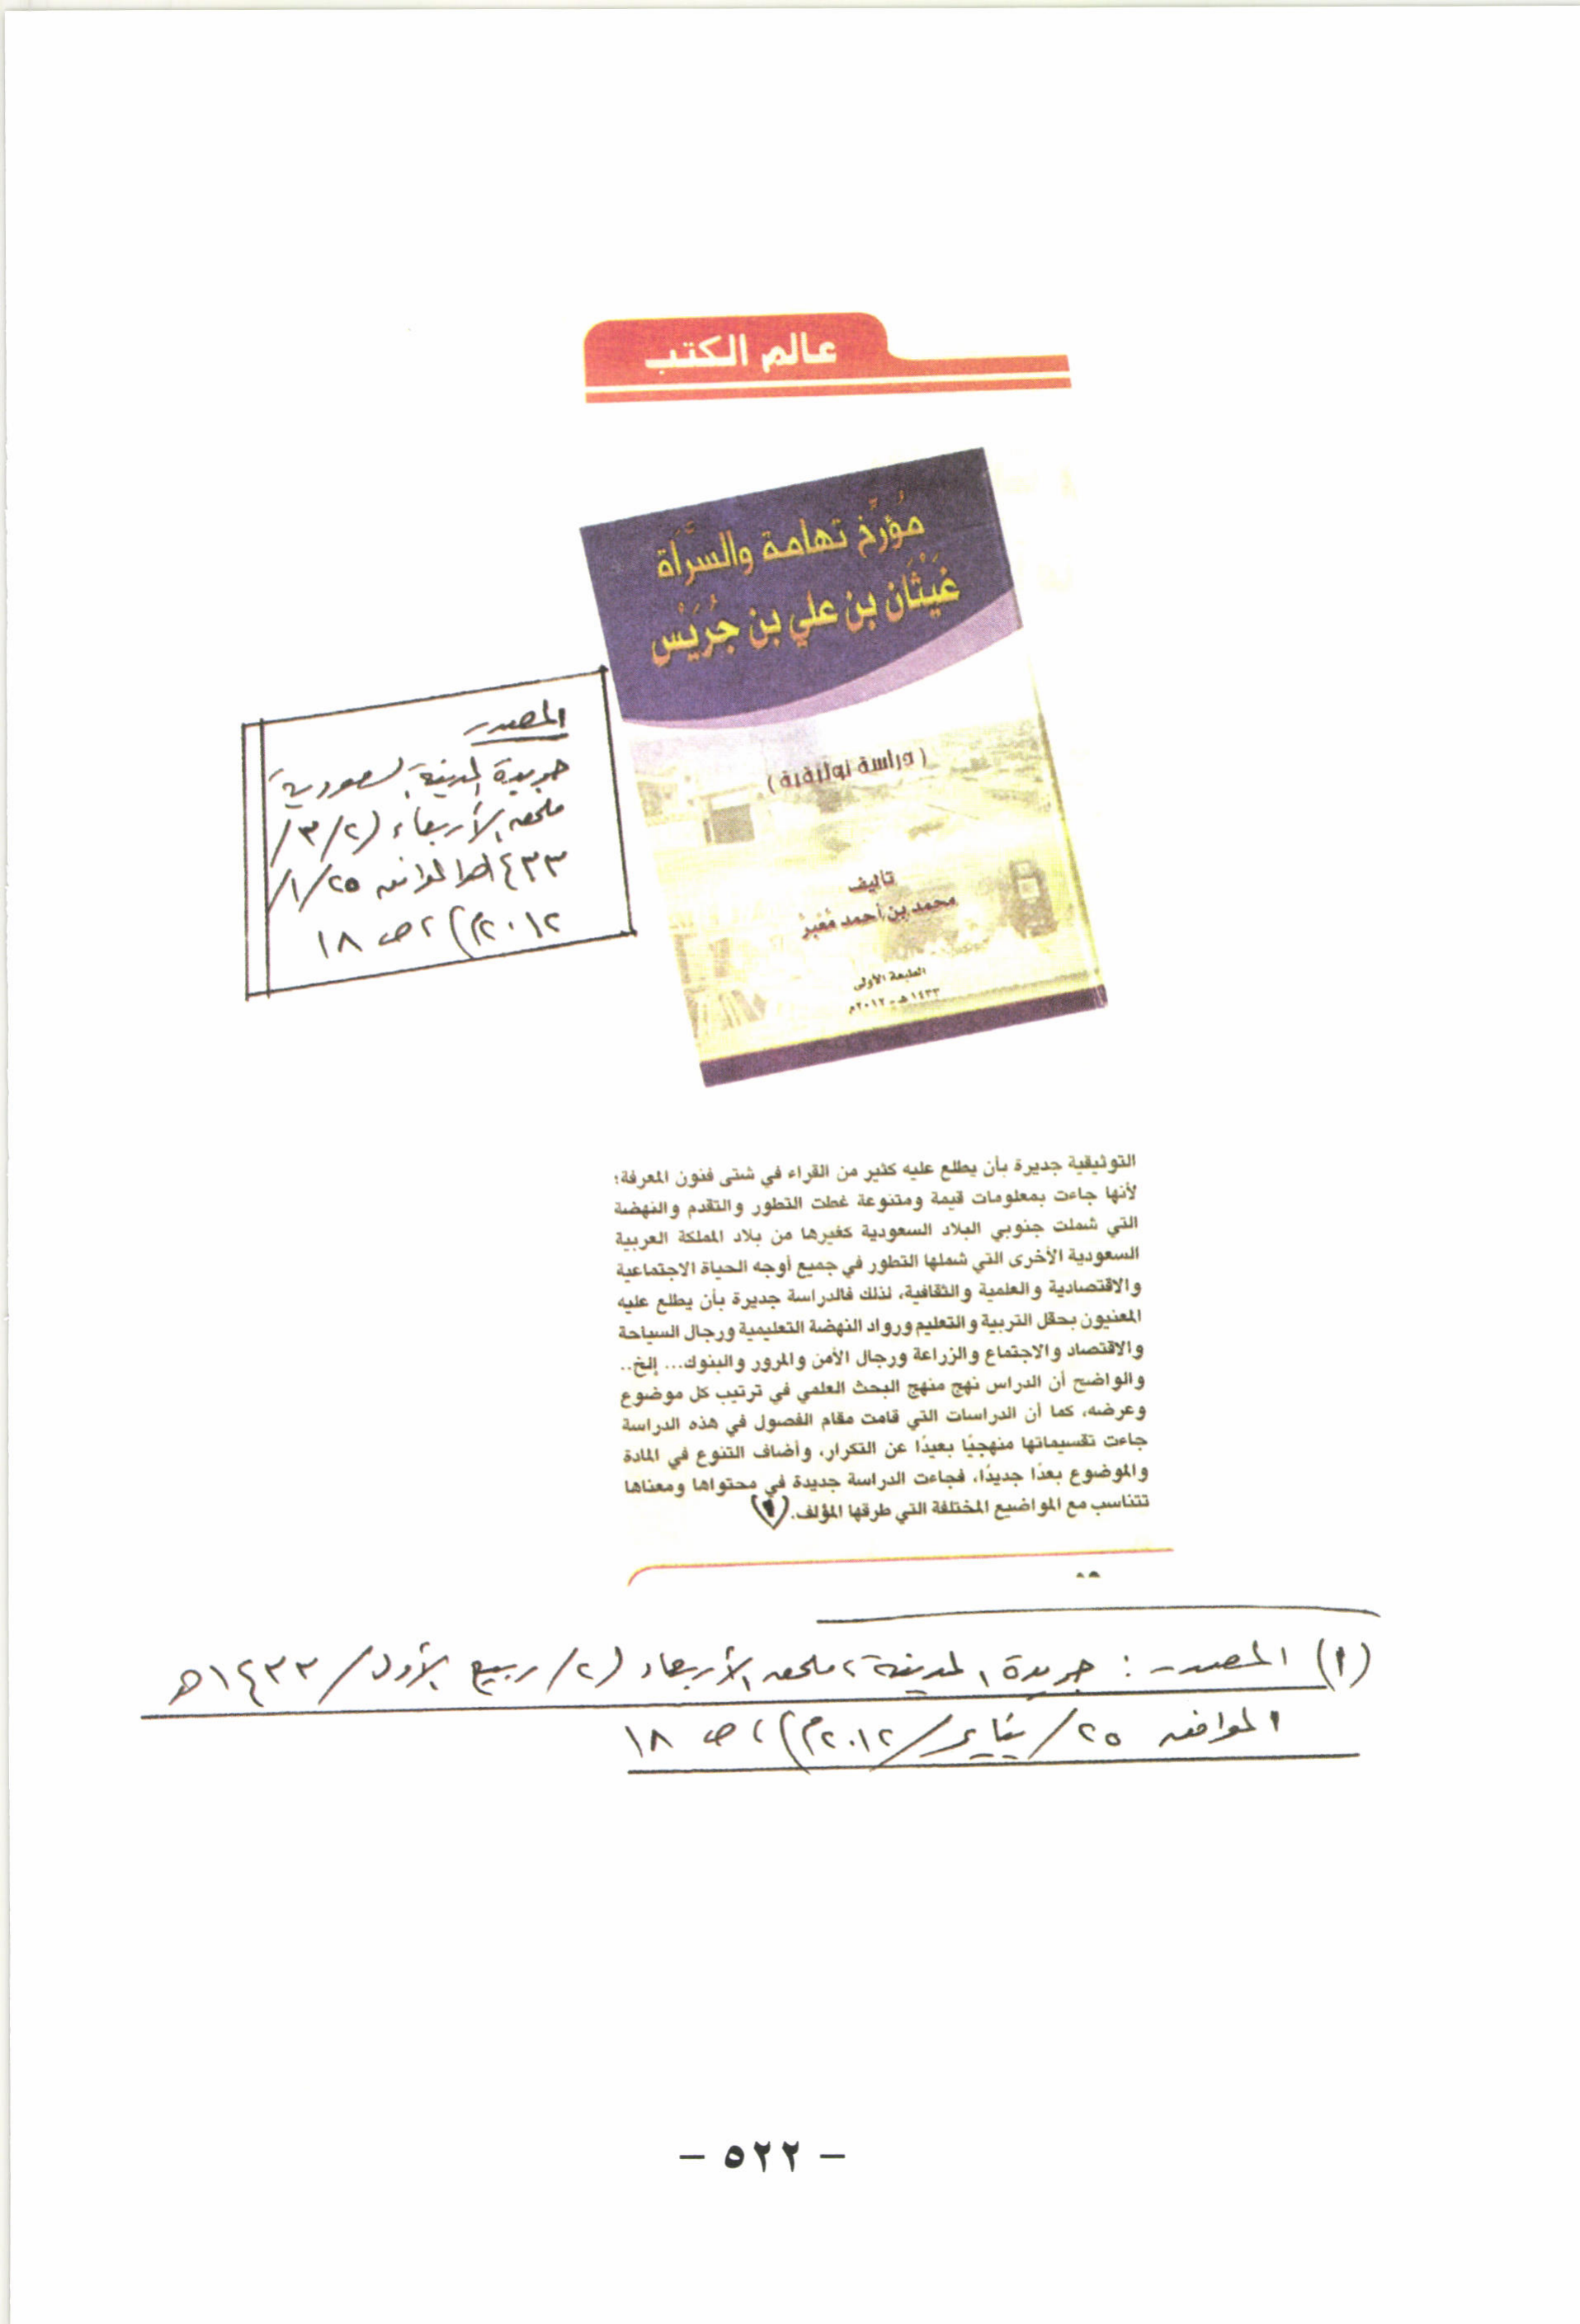 عالم الكتب
مُؤرِّخ تهامة والسَّرَاة
غَيْثَان بن علي بن جُرَيْس
(دراسة توثيقية)
تأليف
محمد بن أحمد مُعَبِّرْ
الطبعة الأولى
١٤٣٣هـ - ٢٠١٢م
المصدر
جريدة المدينة السعودية
ملحق الأربعاء (٢/٣/
١٤٣٣هـ الموافق ٢٥/١/
٢٠١٢م)، ص ١٨
التوثيقية جديرة بأن يطلع عليه كثير من القراء في شتى فنون المعرفة؛
لأنها جاءت بمعلومات قيمة ومتنوعة غطت التطور والتقدم والنهضة
التي شملت جنوبي البلاد السعودية كغيرها من بلاد المملكة العربية
السعودية الأخرى التي شملها التطور في جميع أوجه الحياة الاجتماعية
والاقتصادية والعلمية والثقافية، لذلك فالدراسة جديرة بأن يطلع عليه
المعنيون بحقل التربية والتعليم ورواد النهضة التعليمية ورجال السياحة
والاقتصاد والاجتماع والزراعة ورجال الأمن والمرور والبنوك... إلخ..
والواضح أن الدراس نهج منهج البحث العلمي في ترتيب كل موضوع
وعرضه، كما أن الدراسات التي قامت مقام الفصول في هذه الدراسة
جاءت تقسيماتها منهجيًا بعيدًا عن التكرار، وأضاف التنوع في المادة
والموضوع بعدًا جديدًا، فجاءت الدراسة جديدة في محتواها ومعناها
تتناسب مع المواضيع المختلفة التي طرقها المؤلف. (١)
(١) المصدر: جريدة المدينة، ملحق الأربعاء (٢/ ربيع الأول/ ١٤٣٣هـ
الموافق ٢٥/ يناير/ ٢٠١٢م)، ص ١٨
- ٥٢٢ -